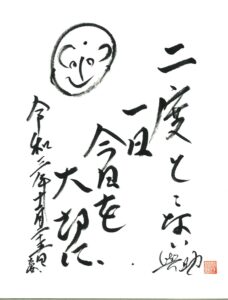 二度とこない
一日
今日を
大切に
與助
令和二年十月二十五日